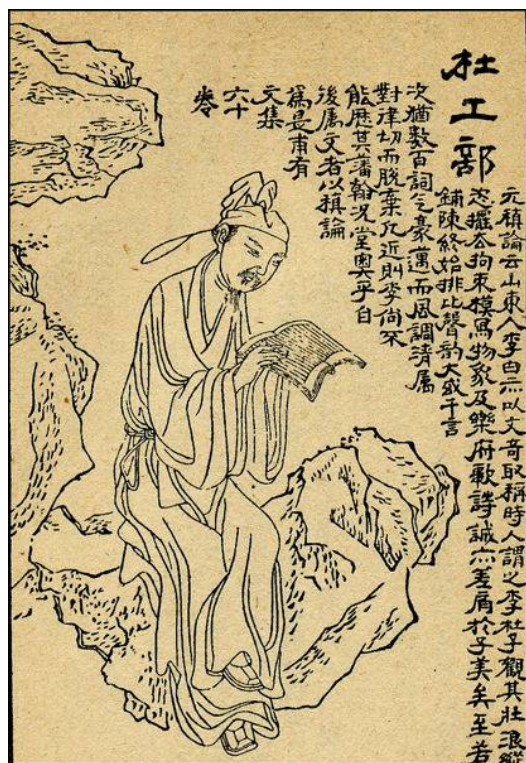 杜工部
元稹論云山東人李白亦以文奇取稱時人謂之李杜予觀其壯浪縱
恣擺去拘束模寫物象及樂府歌詩誠亦差肩於子美矣至若
鋪陳終始排比聲韵大或千言
次猶數百詞气豪邁而風調清属
對律切而脱棄凡近則李尚不
能歷其藩翰况堂奥乎白
後属文者以稹論
爲是甫有
文集
六十
卷